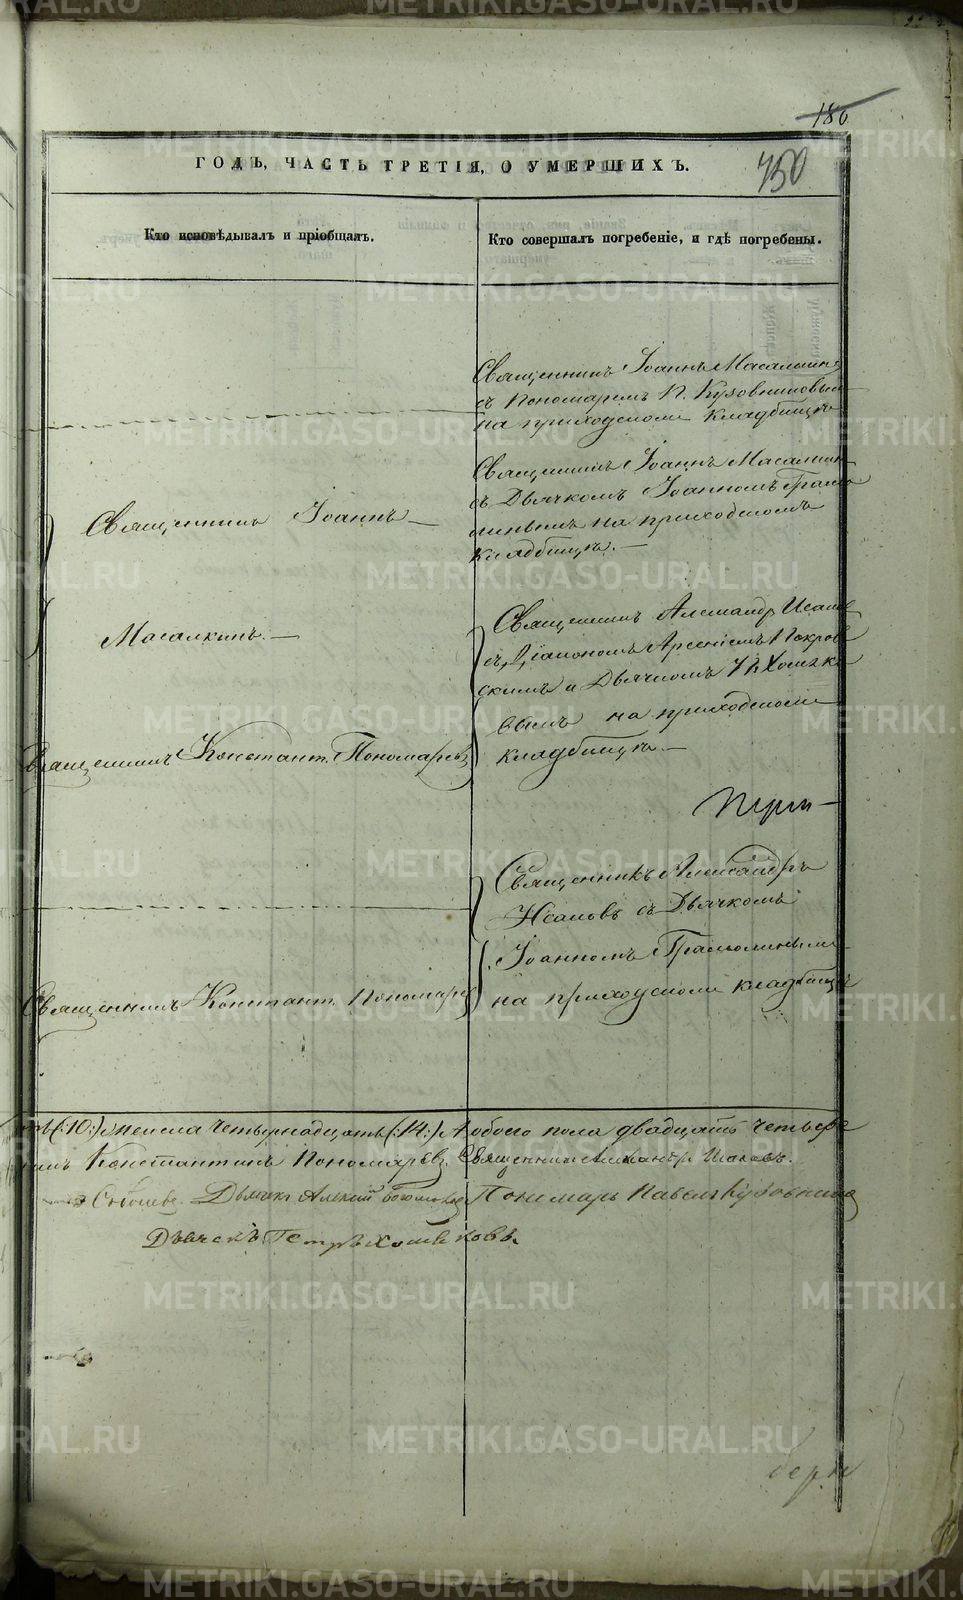 180
750
ГОДЪ, ЧАСТЬ ТРЕТІЯ, О УМЕРШИХЪ.
Кто исповѣдывалъ и пріобщалъ.
Кто совершалъ погребеніе, и гдѣ погребены.
Священникъ Іоаннъ Масалкин
съ Пономаремъ П. Кузовниковым
на приходскомъ кладбищѣ
Священникъ Іоаннъ Масалкин
съ Дьячкомъ Іоанномъ
на приходскомъ
кладбищѣ.
Священникъ Іоаннъ
Масалкинъ.
Священникъ Александр Исаков
съ Діакономъ Арсеніемъ Покров
скимъ и Дьячкомъ Хомяко
вымъ на приходскомъ
кладбищѣ.
Священникъ Констант. Пономаревъ
Священникъ Александръ
Исаковъ съ Дьячкомъ
Іоанномъ
на приходскомъ кладбищѣ
Священникъ Констант. Пономарев
(:10:) женска четырнадцать (:14:) А обоего пола двадцать четыре
Константинъ Пономаревъ. Священникъ Александръ Исаковъ.
Дьячекъ Алексій Пономарь Павелъ Кузовников
Дьячекъ Петръ Хомяковъ.
METRIKI.GASO-URAL.RU